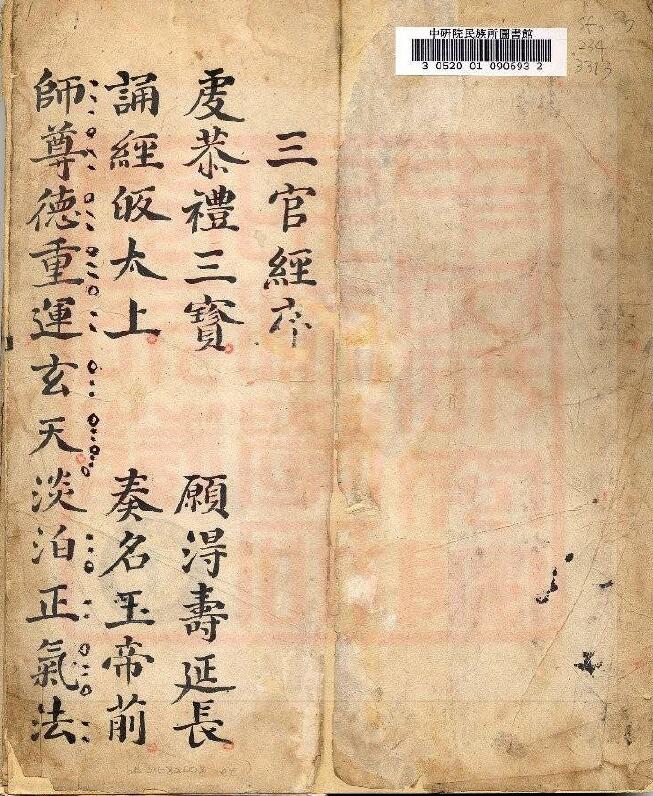 中研院民族所圖書館
3 0520 01 090693 2
234
3313
三官經亣
虔恭禮三寶 願淂壽延長
誦經皈太上 奏名玉帝前
師尊德重運玄天淡泊正氣法